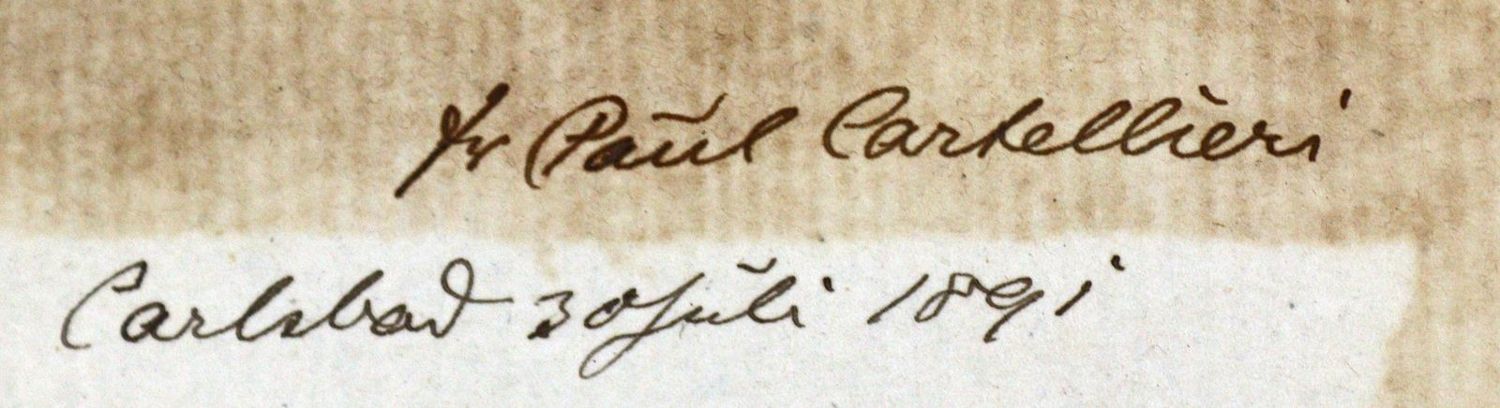 Dr Paul Cartellieri
Carlsbad 30 Juli 1891